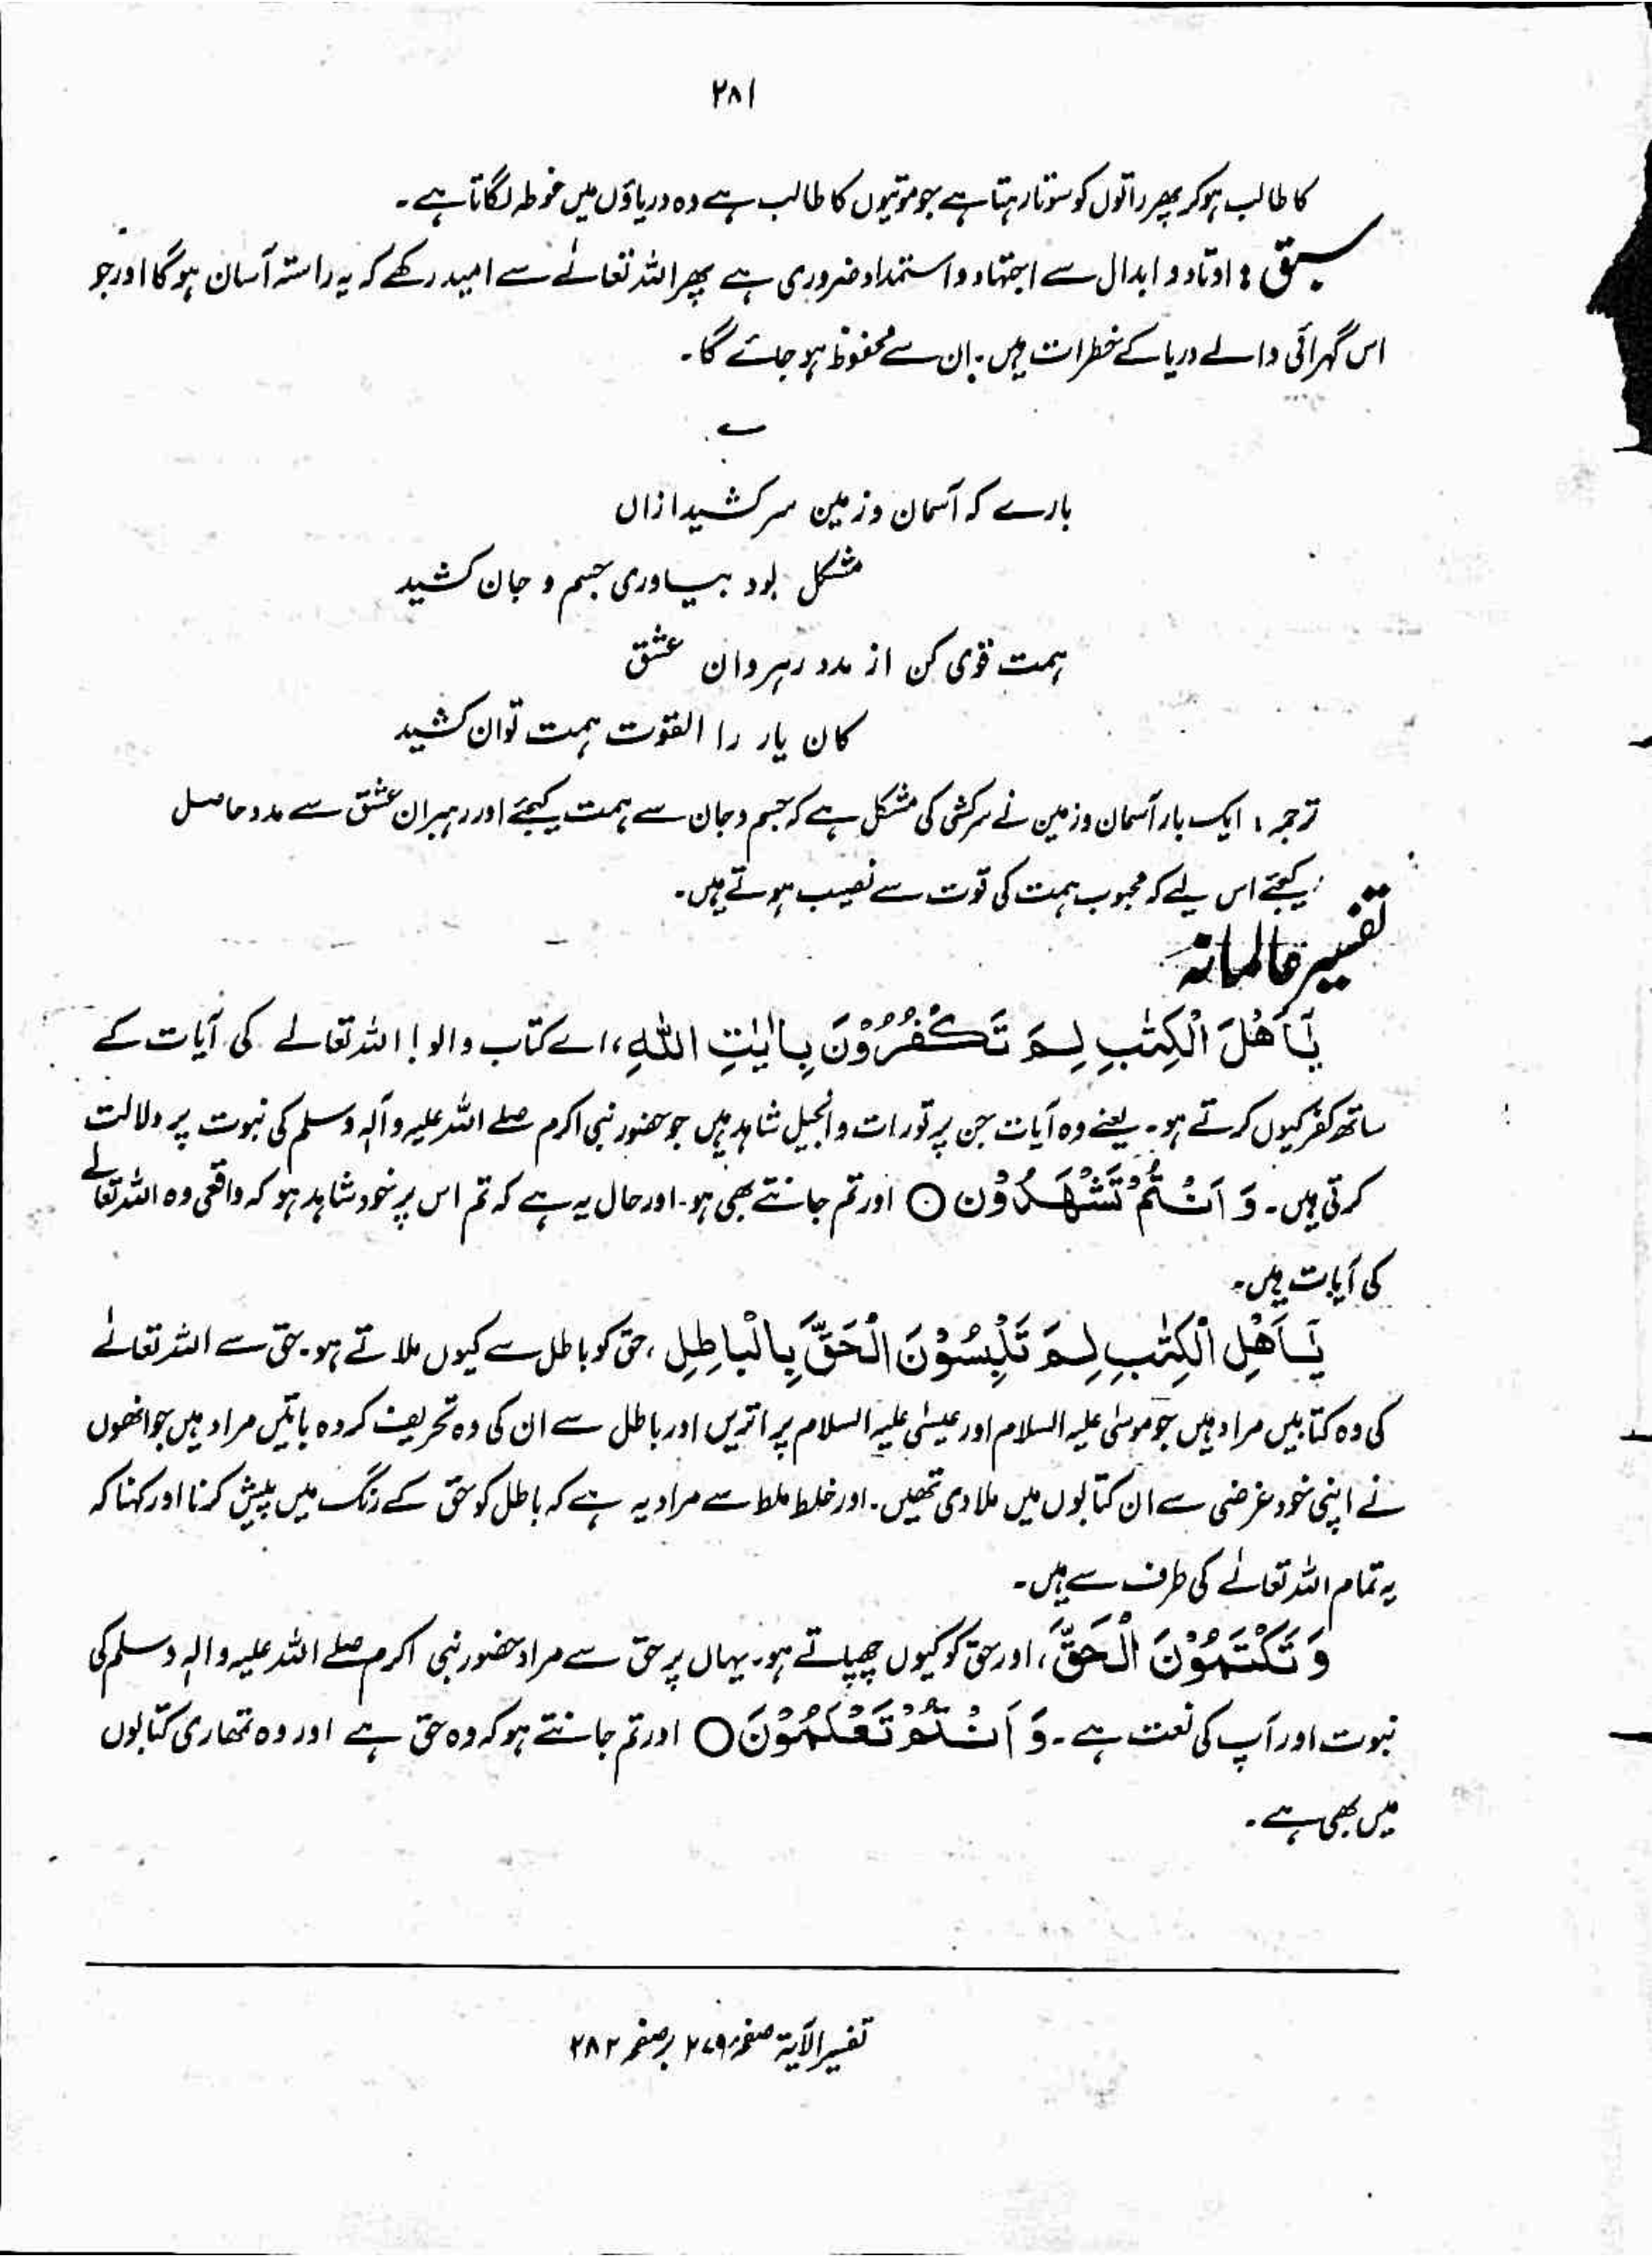 ۲۸۱
کا طالب ہو کر پھر راتوں کو سوتا رہتا ہے جو موتیوں کا طالب ہے وہ دریاؤں میں غوطہ لگاتا ہے۔
سبق : اوتاد و ابدال سے اجتہاد و استمداد ضروری ہے پھر اللہ تعالےٰ سے امید رکھے کہ یہ راستہ آسان ہو گا اور جو
اس گہرائی والے دریا کے خطرات ہیں۔ ان سے محفوظ ہو جائے گا۔
بارے کہ آسمان و زمین سرکشید ازاں
مشکل بود بیاوری جسم و جان کشید
ہمت قوی کن از مدد رہروان عشق
کان یار را القوت ہمت توان کشید
ترجمہ : ایک بار آسمان و زمین نے سرکشی کی مشکل ہے کہ جسم و جان سے ہمت کیجئے اور رہبران عشق سے مدد حاصل
کیجئے اس لیے کہ محبوب ہمت کی قوت سے نصیب ہوتے ہیں۔
تفسیر عالمانہ
يٰٓاَهْلَ الْكِتٰبِ لِمَ تَكْفُرُوْنَ بِاٰيٰتِ اللّٰهِ ، اے کتاب والو ! اللہ تعالےٰ کی آیات کے
ساتھ کفر کیوں کرتے ہو۔ یعنے وہ آیات جن پر تورات و انجیل شاہد ہیں جو حضور نبی اکرم صلے اللہ علیہ و آلہٖ وسلم کی نبوت پر دلالت
کرتی ہیں۔ وَ اَنْتُمْ تَشْهَدُوْن ○ اور تم جانتے بھی ہو۔ اور حال یہ ہے کہ تم اس پر خود شاہد ہو کہ واقعی وہ اللہ تعالےٰ
کی آیات ہیں۔
يٰٓاَهْلِ الْكِتٰبِ لِمَ تَلْبِسُوْنَ الْحَقَّ بِالْبَاطِلِ ، حق کو باطل سے کیوں ملاتے ہو۔ حق سے اللہ تعالےٰ
کی وہ کتابیں مراد ہیں جو موسٰی علیہ السلام اور عیسٰی علیہ السلام پر اتریں اور باطل سے ان کی وہ تحریف کردہ باتیں مراد ہیں جو انھوں
نے اپنی خود غرضی سے ان کتابوں میں ملا دی تھیں۔ اور خلط ملط سے مراد یہ ہے کہ باطل کو حق کے رنگ میں پیش کرنا اور کہنا کہ
یہ تمام اللہ تعالےٰ کی طرف سے ہیں۔
وَ تَكْتُمُوْنَ الْحَقَّ ، اور حق کو کیوں چھپاتے ہو۔ یہاں پر حق سے مراد حضور نبی اکرم صلے اللہ علیہ و الہٖ وسلم کی
نبوت اور آپ کی نعت ہے۔ وَ اَنْتُمْ تَعْلَمُوْنَ ○ اور تم جانتے ہو کہ وہ حق ہے اور وہ تمھاری کتابوں
میں بھی ہے۔
تفسیر الآیۃ صفحہ ۲۷۹ بر صفحہ ۲۸۲